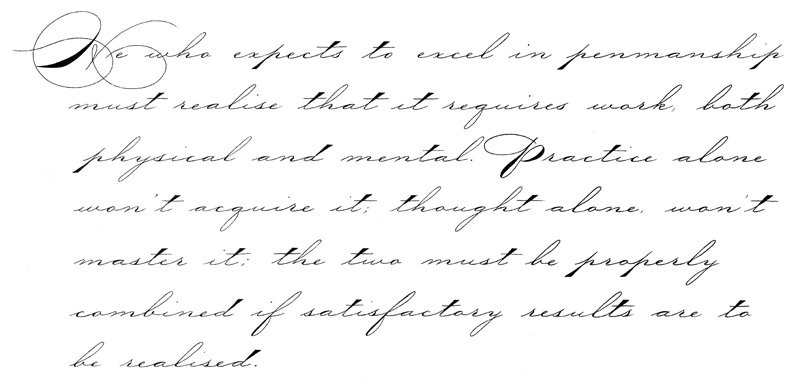 He who expects to excel in penmanship
must realise that it requires work, both
physical and mental. Practice alone
won't acquire it; thought alone, won't
master it; the two must be properly
combined if satisfactory results are to
be realised.